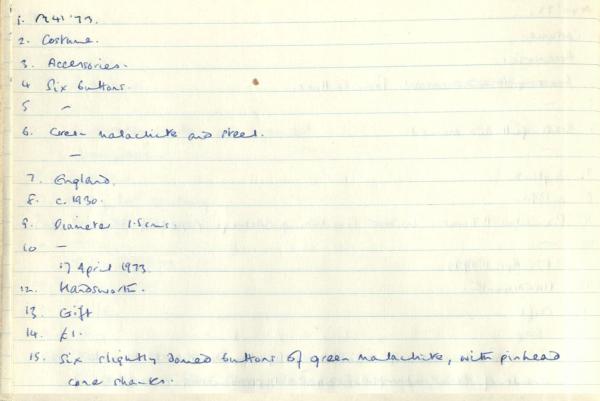 1. M41'73.
2. Costume.
3. Accessories.
4 Six buttons.
5 -
6. Green malachite and steel.
-
7. England.
8. c.1930.
9. Diameter 1.5cms.
10 -
17 April 1973
12. Handsworth.
13. Gift
14. £1.
15. Six slightly domed buttons of green malachite, with pinhead
shanks.